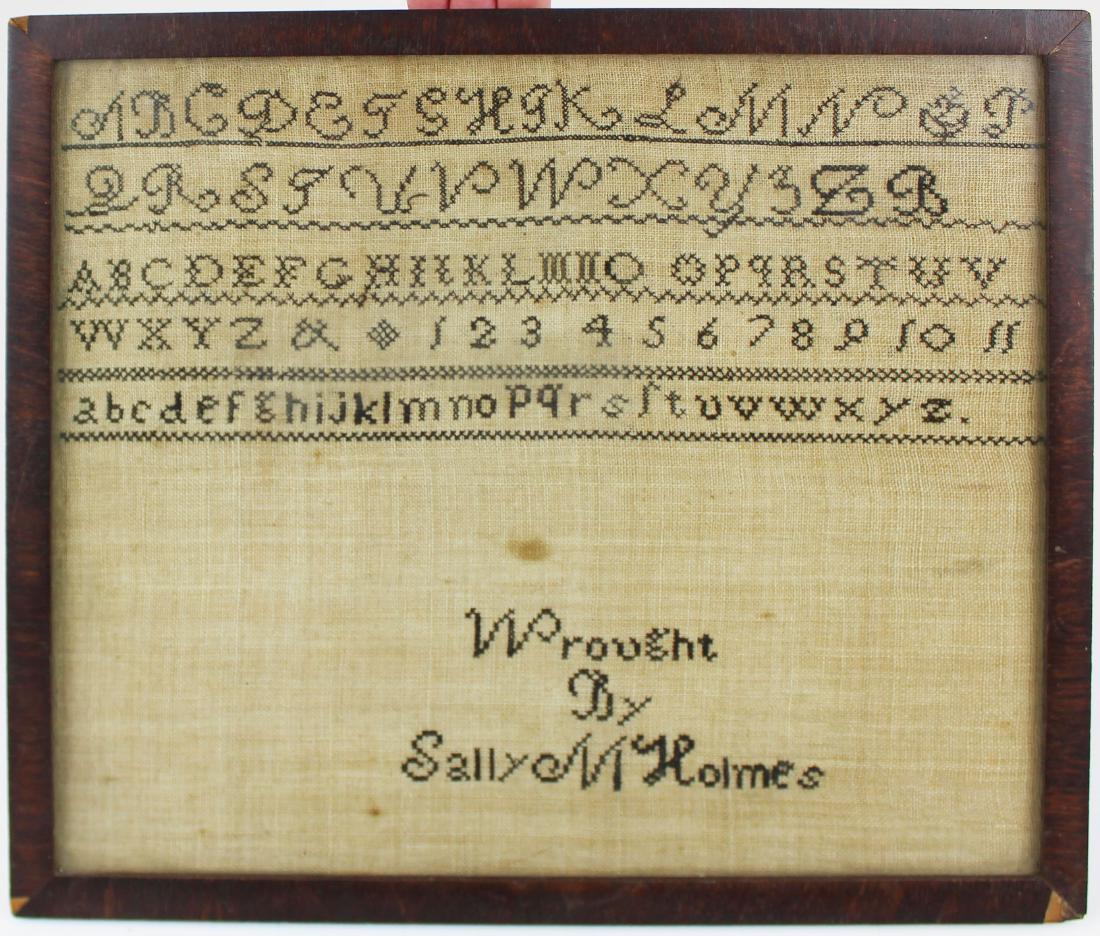 A B C D E F G H I K L M N O P
Q R S T U V W X Y 3 Z B
A B C D E F G H I I K L M N O O P q R S T U V
W X Y Z & 1 2 3 4 5 6 7 8 9 10 11
a b c d e f g h i j k l m n o p q r s ſ t u v w x y z.
Wrought
By
Sally M Holmes